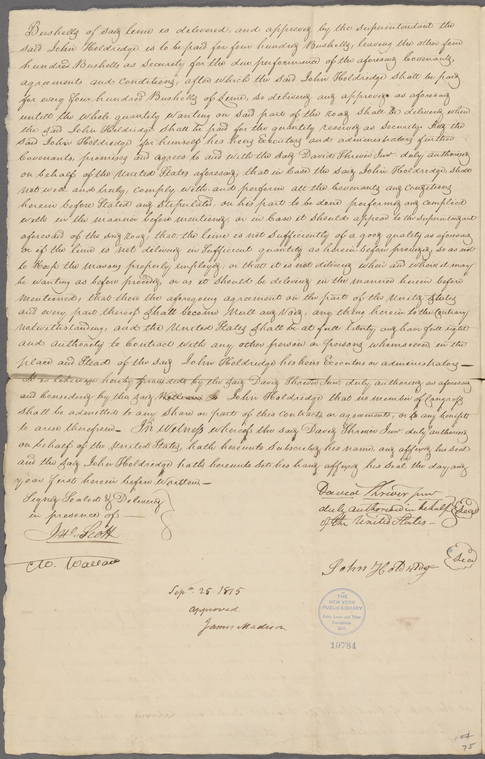 Bushells of said lime is delivered, and approved by the Superintendant the
said John Holdredge is to be paid for four hundred Bushells, leaving the other four
hundred Bushells as security for the due performance of the aforesaid Covenants,
agreements and Conditions, after which the said John Holdredge shall be paid
for every four hundred Bushells of Lime, so delivered and approved as aforesaid
untill the whole quantity wanting on said part of the road shall be delivered when
the said John Holdredge shall be paid for the quantity reserved as Security. And the
said John Holdredge for himself his heirs Executors and administrators further
Covenants, promises and agrees to and with the said David Shriver Junr duly authorised
on behalf of the United States aforesaid, that in Case the said John Holdredge shall
not well and truly, comply with, and perform all the Covenants and Conditions
herein before stated and stipulated, on his part to be done performed and complied
with in the manner before mentioned, or in case it should appear to the Superintendant
aforesaid of the said road that the lime is not sufficiently of a good quality as aforesaid
or if the lime is not delivered in sufficient quantity as herein before provided, so as not
to keep the masons properly employed, or that it is not delivered when and where it may
be wanting as before provided, or as it should be delivered in the manner herein before
mentioned, that then the aforegoing agreement on the part of the United States
and every part thereof shall become Null and Void, any thing herein to the Contrary
notwithstanding, and the United States shall be at full liberty and have full right
and authority to Contract with any other person or persons whomsoever in the
place and stead of the said John Holdredge his heirs Executors or administrators—
It is likewise hereby provided by the said David Shriver Junr duly authorised as aforesaid
and Consented by the said John Holdredge that no member of Congress
shall be admitted to any share or part of this contract or agreement, or to any benefit
to arise therefrom. In Witness whereof the said David Shriver Junr duly authorised
on behalf of the United States, hath hereunto Subscribed his name and affixed his seal
and the said John Holdredge hath hereunto set his hand affixed his Seal the day and
year first herein before Written—
Signed Sealed & Delivered
in presence of
David Shriver junr
duly authorised in behalf Seal
of the United States—
Scott
Wallace
John Holdredge Seal
Sepr. 25. 1815
approved
James Madison
THE
NEW YORK
PUBLIC LIBRARY
Astor, Lenox and Tilden
Foundations
19784